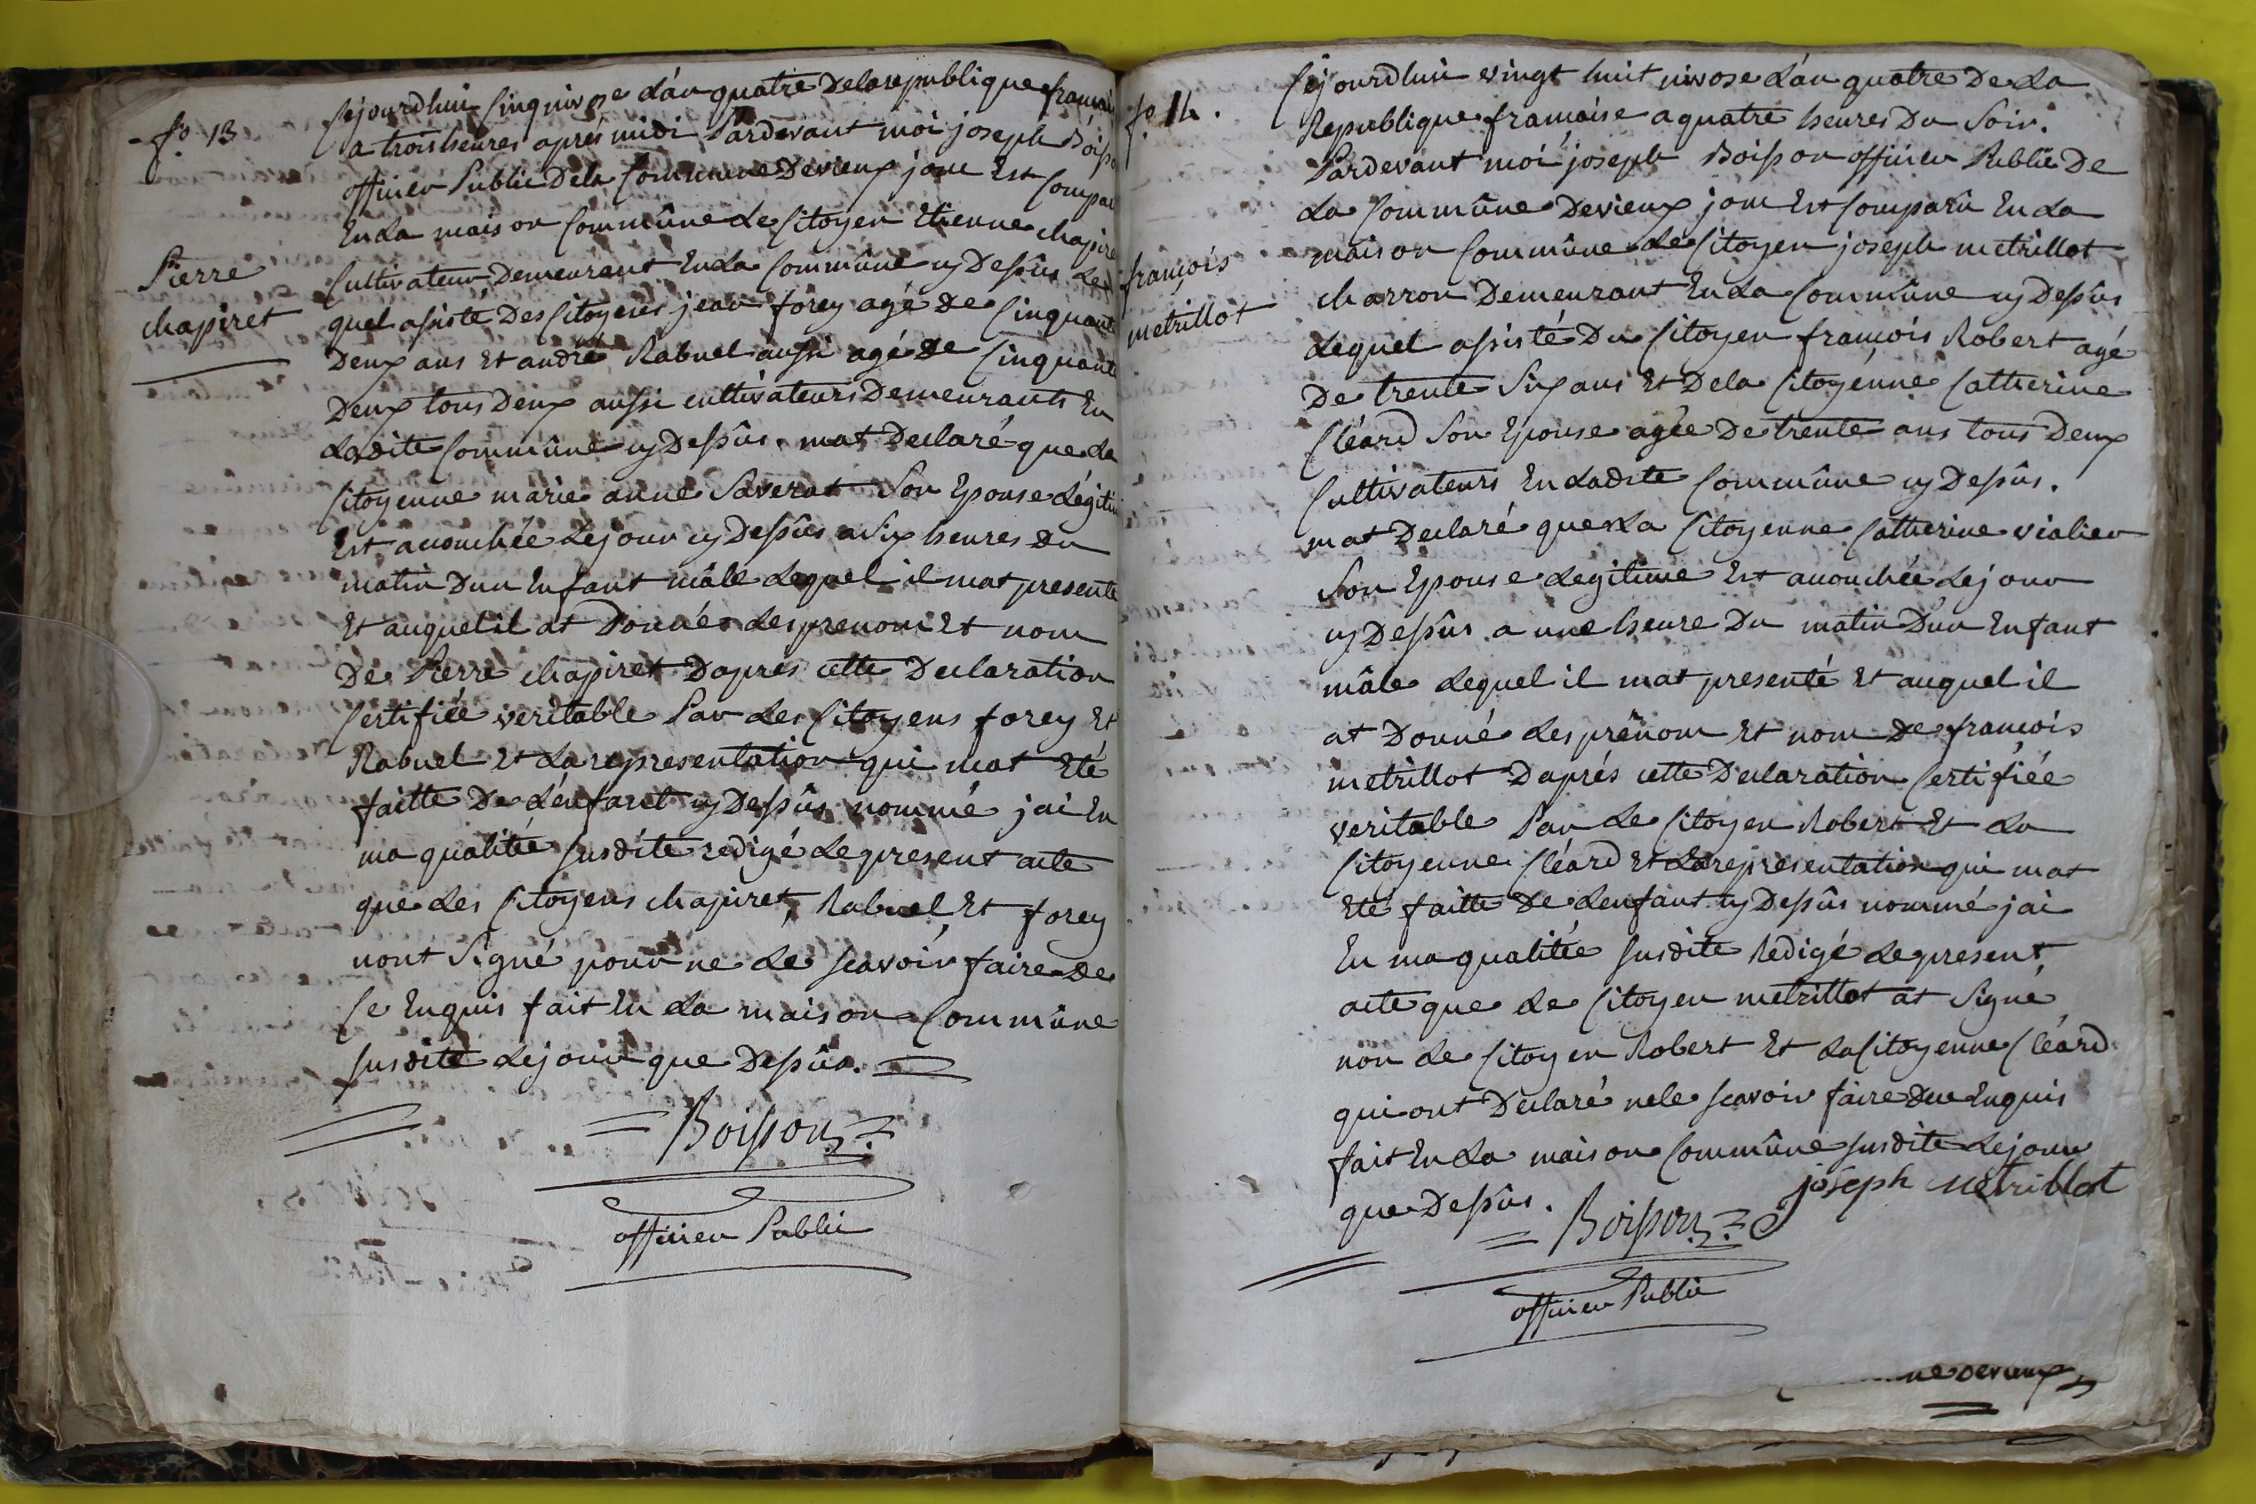 fo. 13
Pierre
chapiret
Cejourdhui Cinq nivose dán quatre Delarepublique francai
a trois heures aprés midi Pardevant moi joseph Boisso
officier Public Dela Commune Devieux jour Est Compar
Enda maison Commûne le Citoyen Etienne chapire
Cultivateur Demeurant Enla Commûne cy Dessûs le
quel assisté Des Citoyens jean forey agé de Cinquant
Deux ans Et andré Rabuel aussi agé de Cinquant
Deux tous Deux aussi cultivateurs Demeurants En
ladite Commûne cy Dessûs. mat Declaré que la
Citoyenne marie anne Saverat Son Epouse Légitim
Est accouchée Lejour cy Dessûs a Six heures du
matin Dun Enfant mâle Lequel il mat presenté
Et auquel il at Donné les prenom Et nom
De Pierre chapiret Daprés cette Declaration
Certifiée veritable Par les Citoyens forey Et
Rabuel Et la representation qui mat Eté
faitte De Lénfant cy Dessûs nommé jai En
ma qualitée susdite redigé Lepresent acte
que les Citoyens chapiret, Rabuel Et forey
nont Signé pour ne le scavoir faire de
Ce Enquis fait En la maison Commûne
susdite Lejour que Dessûs.
Boisson
officier Public
fo. 14.
françois
metrillot
Cejourdhui vingt huit nivose dán quatre De la
Republique francaise a quatre heures Du Soir.
Pardevant moi joseph Boisson officier Public De
la Commûne Devieux jour Est Comparû En la
maison Commûne le Citoyen joseph metrillot
charron Demeurant En la Commûne cy Dessûs
Lequel assisté Du Citoyen françois Robert agé
De trente Six ans Et Dela Citoyénne Catherine
Cléard Son Epouse agée De trente ans tous Deux
Cultivateurs En ladite Commûne cy Dessûs.
mat Declaré que la Citoyenne Catherine vialier
Son Epouse Legitime Est accouchée Lejour
cy Dessûs a une heure Du matin Dún Enfant
mâle Lequel il mat presenté Et auquel il
at Donné les prénom Et nom de francois
metrillot Daprés cette Declaration Certifiée
veritable Par le Citoyen Robert Et la
Citoyenne Cléard Et la representation qui mat
Eté faitte De Lenfant cy Dessûs nommé jai
En ma qualitée susdite Redigé Lepresent
acte que le Citoyen metrillot at Signé
non le Citoyen Robert Et la Citoyenne Cléard
qui ont Declaré nele scavoir faire dece Enquis
fait En la maison Commûne susdite Lejour
que Dessûs.
joseph metrillot
Boisson
officier Public